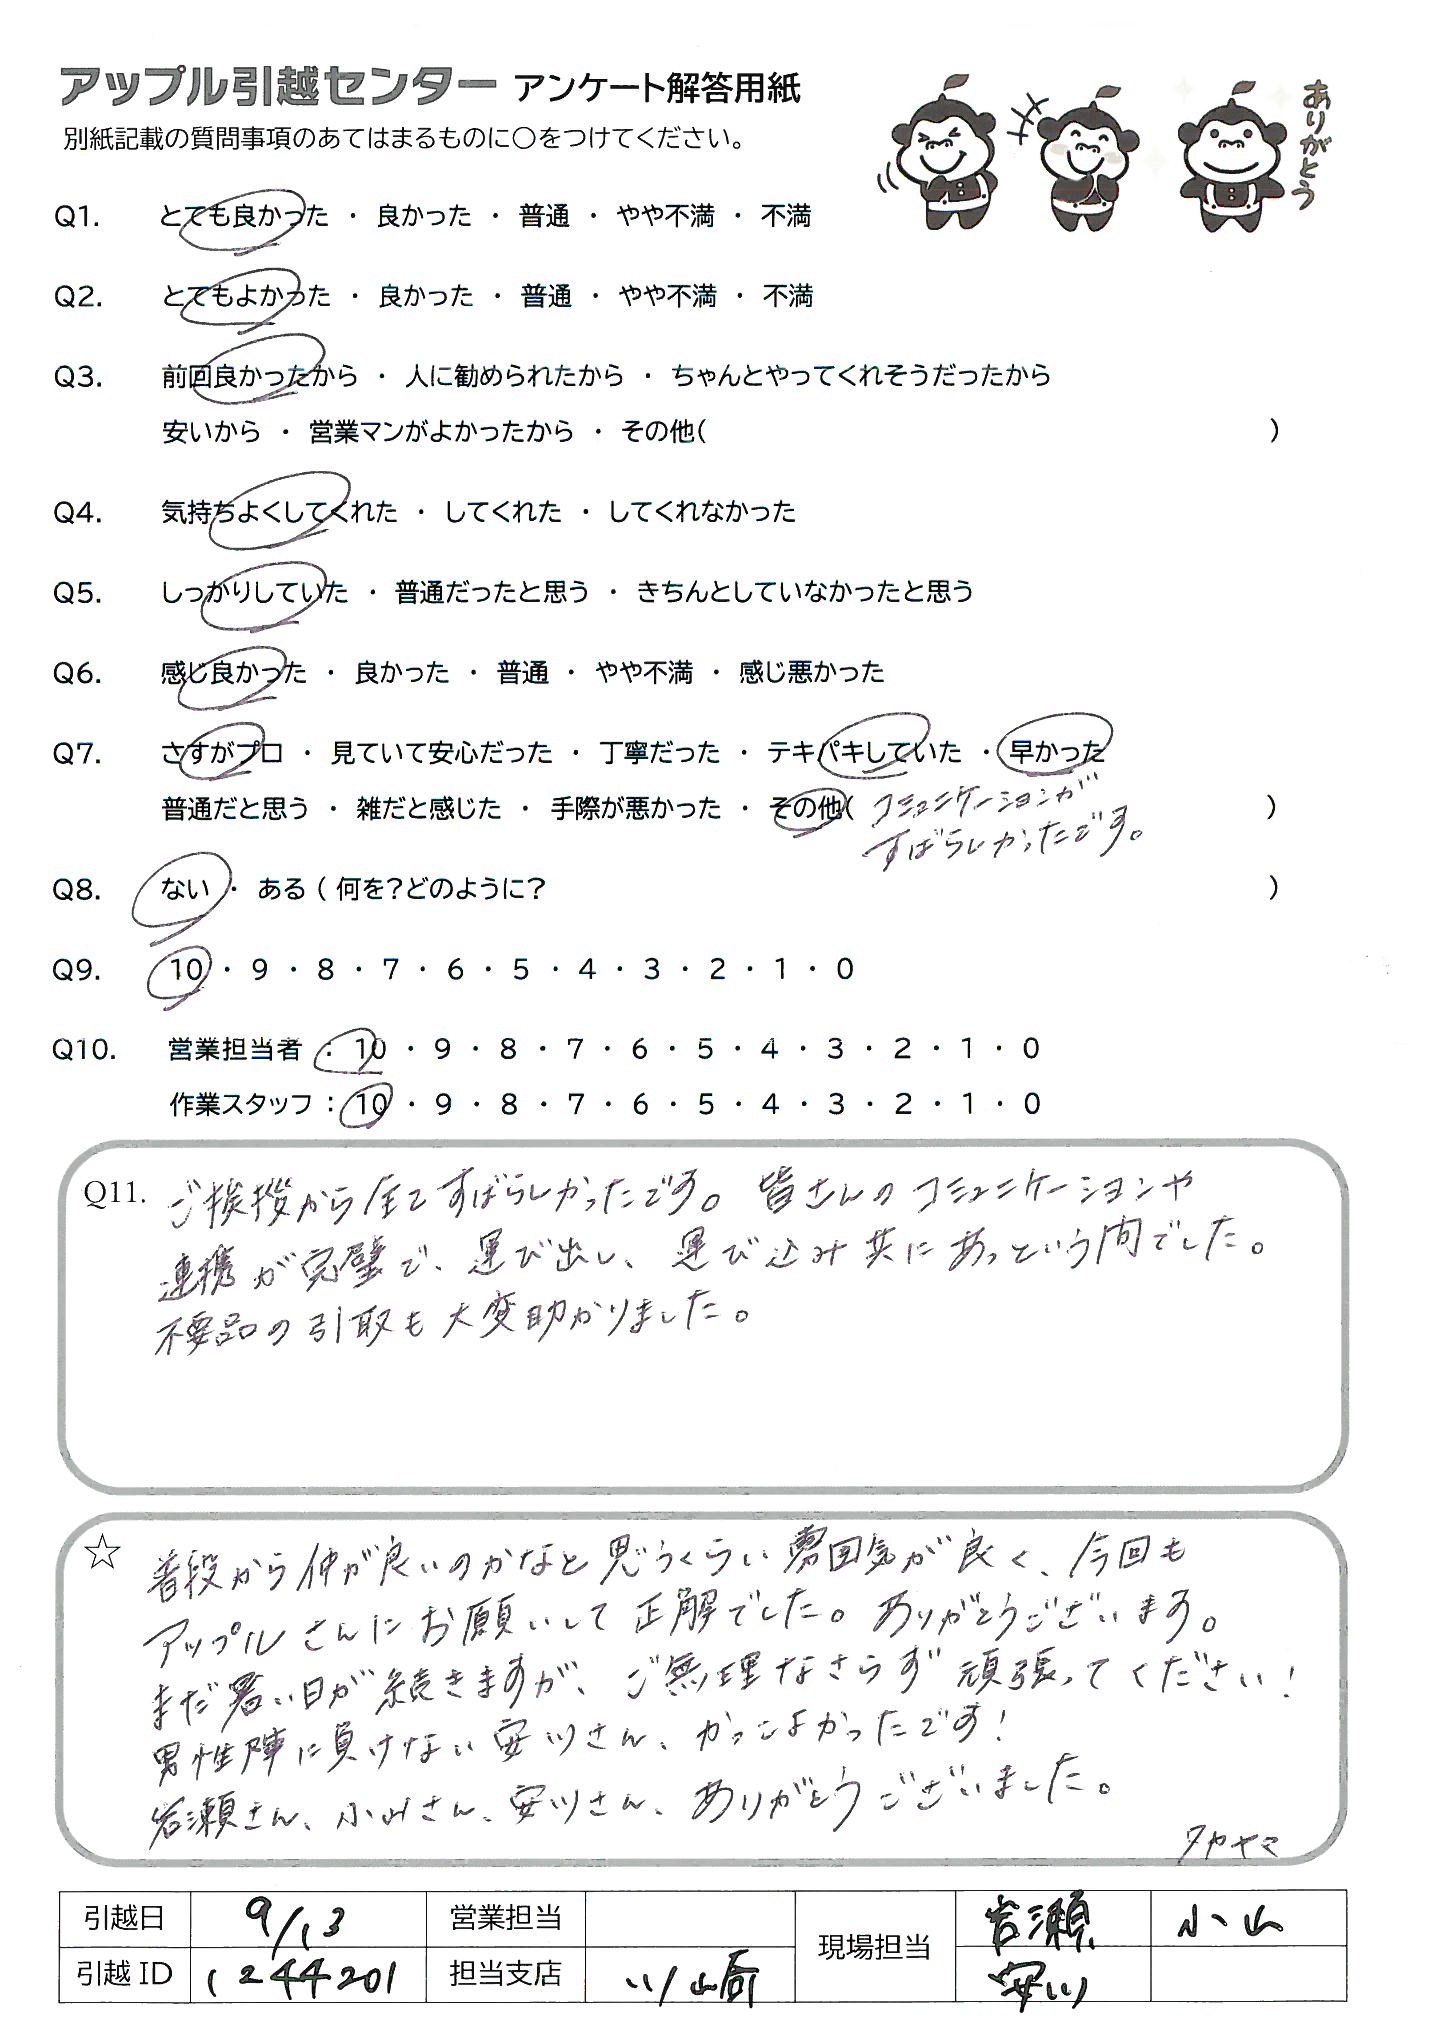 アップル引越センター アンケート解答用紙
別紙記載の質問事項のあてはまるものに○をつけてください。
ありがとう
Q1. とても良かった ・ 良かった ・ 普通 ・ やや不満 ・ 不満
Q2. とてもよかった ・ 良かった ・ 普通 ・ やや不満 ・ 不満
Q3. 前回良かったから ・ 人に勧められたから ・ ちゃんとやってくれそうだったから
安いから ・ 営業マンがよかったから ・ その他( )
Q4. 気持ちよくしてくれた ・ してくれた ・ してくれなかった
Q5. しっかりしていた ・ 普通だったと思う ・ きちんとしていなかったと思う
Q6. 感じ良かった ・ 良かった ・ 普通 ・ やや不満 ・ 感じ悪かった
Q7. さすがプロ ・ 見ていて安心だった ・ 丁寧だった ・ テキパキしていた ・ 早かった
普通だと思う ・ 雑だと感じた ・ 手際が悪かった ・ その他( コミュニケーションが )
すばらしかったです。
Q8. ない ・ ある ( 何を?どのように? )
Q9. 10 ・ 9 ・ 8 ・ 7 ・ 6 ・ 5 ・ 4 ・ 3 ・ 2 ・ 1 ・ 0
Q10. 営業担当者 : 10 ・ 9 ・ 8 ・ 7 ・ 6 ・ 5 ・ 4 ・ 3 ・ 2 ・ 1 ・ 0
作業スタッフ : 10 ・ 9 ・ 8 ・ 7 ・ 6 ・ 5 ・ 4 ・ 3 ・ 2 ・ 1 ・ 0
Q11. ご挨拶から全てすばらしかったです。皆さんのコミュニケーションや
連携が完璧で、運び出し、運び込み共にあっという間でした。
不要品の引取も大変助かりました。
☆ 普段から仲が良いのかなと思うくらい雰囲気が良く、今回も
アップルさんにお願いして正解でした。ありがとうございます。
まだ暑い日が続きますが、ご無理なさらず頑張ってください!
男性陣に負けない安川さん、かっこよかったです!
岩瀬さん、小山さん、安川さん、ありがとうございました。
タカヤマ
引越日 9/13 営業担当 現場担当 岩瀬 小山
引越ID 1244201 担当支店 川崎 安川